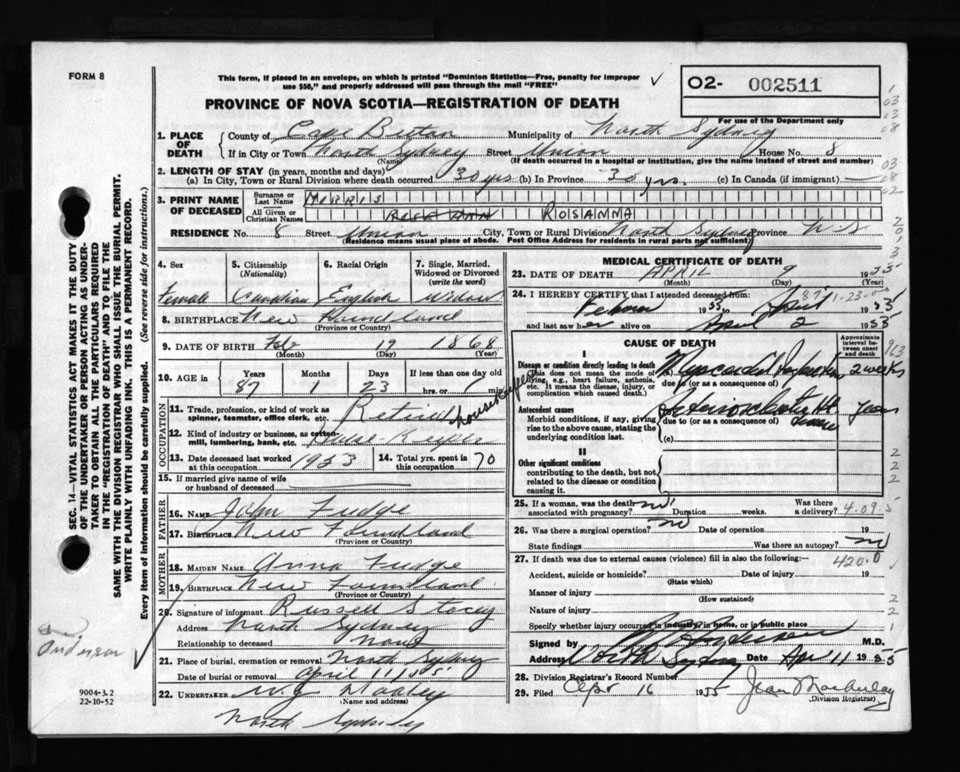 FORM 8
This form, if placed in an envelope, on which is printed "Dominion Statistics—Free, penalty for improper
use $50," and properly addressed will pass through the mail "FREE"
O2- 002511
For use of the Department only
PROVINCE OF NOVA SCOTIA—REGISTRATION OF DEATH
1. PLACE OF DEATH
County of Cape Breton Municipality of North Sydney
If in City or Town North Sydney Street Union House No. 8
(Name) (If death occurred in a hospital or institution, give the name instead of street and number)
2. LENGTH OF STAY (in years, months and days)
(a) In City, Town or Rural Division where death occurred 30 yrs (b) In Province 30 yrs. (c) In Canada (if immigrant)
3. PRINT NAME OF DECEASED
Surname or Last Name
All Given or Christian Names ROSANNA
RESIDENCE No. 8 Street Union City, Town or Rural Division North Sydney Province N-S
(Residence means usual place of abode. Post Office Address for residents in rural parts not sufficient)
4. Sex
Female
5. Citizenship
(Nationality)
Canadian
6. Racial Origin
English
7. Single, Married, Widowed or Divorced
(write the word)
Widow
8. BIRTHPLACE New Foundland
(Province or Country)
9. DATE OF BIRTH Feb 19 1868
(Month) (Day) (Year)
10. AGE in Years Months Days If less than one day old
87 1 23 hrs. or min.
OCCUPATION
11. Trade, profession, or kind of work as
spinner, teamster, office clerk, etc. Retired housekeeper
12. Kind of industry or business, as cotton-
mill, lumbering, bank, etc. House-Keeper
13. Date deceased last worked
at this occupation 1953
14. Total yrs. spent in
this occupation 70
15. If married give name of wife
or husband of deceased
FATHER
16. Name John Fudge
17. Birthplace New Foundland
(Province or Country)
MOTHER
18. MAIDEN NAME Anna Fudge
19. BIRTHPLACE New Foundland
(Province or Country)
20. Signature of informant Russell Stacey
Address North Sydney
Relationship to deceased None
21. Place of burial, cremation or removal North Sydney
Date of burial or removal April 11/55
22. UNDERTAKER W.J.
(Name and address)
North Sydney
MEDICAL CERTIFICATE OF DEATH
23. DATE OF DEATH APRIL 9 1955
(Month) (Day)
24. I HEREBY CERTIFY that I attended deceased from:
1955 to April 1955
and last saw her alive on April 2 1955
CAUSE OF DEATH
Approximate interval between onset and death
I
Disease or condition directly leading to death
(This does not mean the mode of
dying, e.g., heart failure, asthenia,
etc. It means the disease, injury, or
complication which caused death.)
Myocardial Infarction 2 weeks
due to (or as a consequence of)
Antecedent causes
Morbid conditions, if any, giving
rise to the above cause, stating the
underlying condition last.
Ht. Disease years
due to (or as a consequence of)
(c)
II
Other significant conditions
contributing to the death, but not
related to the disease or condition
causing it.
25. If a woman, was the death
associated with pregnancy? no Duration weeks. Was there a delivery?
4-09-5
26. Was there a surgical operation? no Date of operation 19
State findings Was there an autopsy? no
27. If death was due to external causes (violence) fill in also the following:—
420.0
Accident, suicide or homicide? Date of injury 19
(State which)
Manner of injury
(How sustained)
Nature of injury
Specify whether injury occurred in industry, in home, or in public place
Signed by M.D.
Address North Sydney Date Apr 11 1955
28. Division Registrar's Record Number
29. Filed Apr 16 1955 Jean
(Division Registrar)
SEC. 14 VITAL STATISTICS ACT MAKES IT THE DUTY
OF THE UNDERTAKER OR PERSON ACTING AS UNDER-
TAKER TO OBTAIN ALL THE PARTICULARS REQUIRED
IN THE "REGISTRATION OF DEATH" AND TO FILE THE
SAME WITH THE DIVISION REGISTRAR WHO SHALL ISSUE THE BURIAL PERMIT.
WRITE PLAINLY WITH UNFADING INK. THIS IS A PERMANENT RECORD.
Every item of information should be carefully supplied. (See reverse side for instructions.)
Dr Anderson
9004-3.2
22-10-52